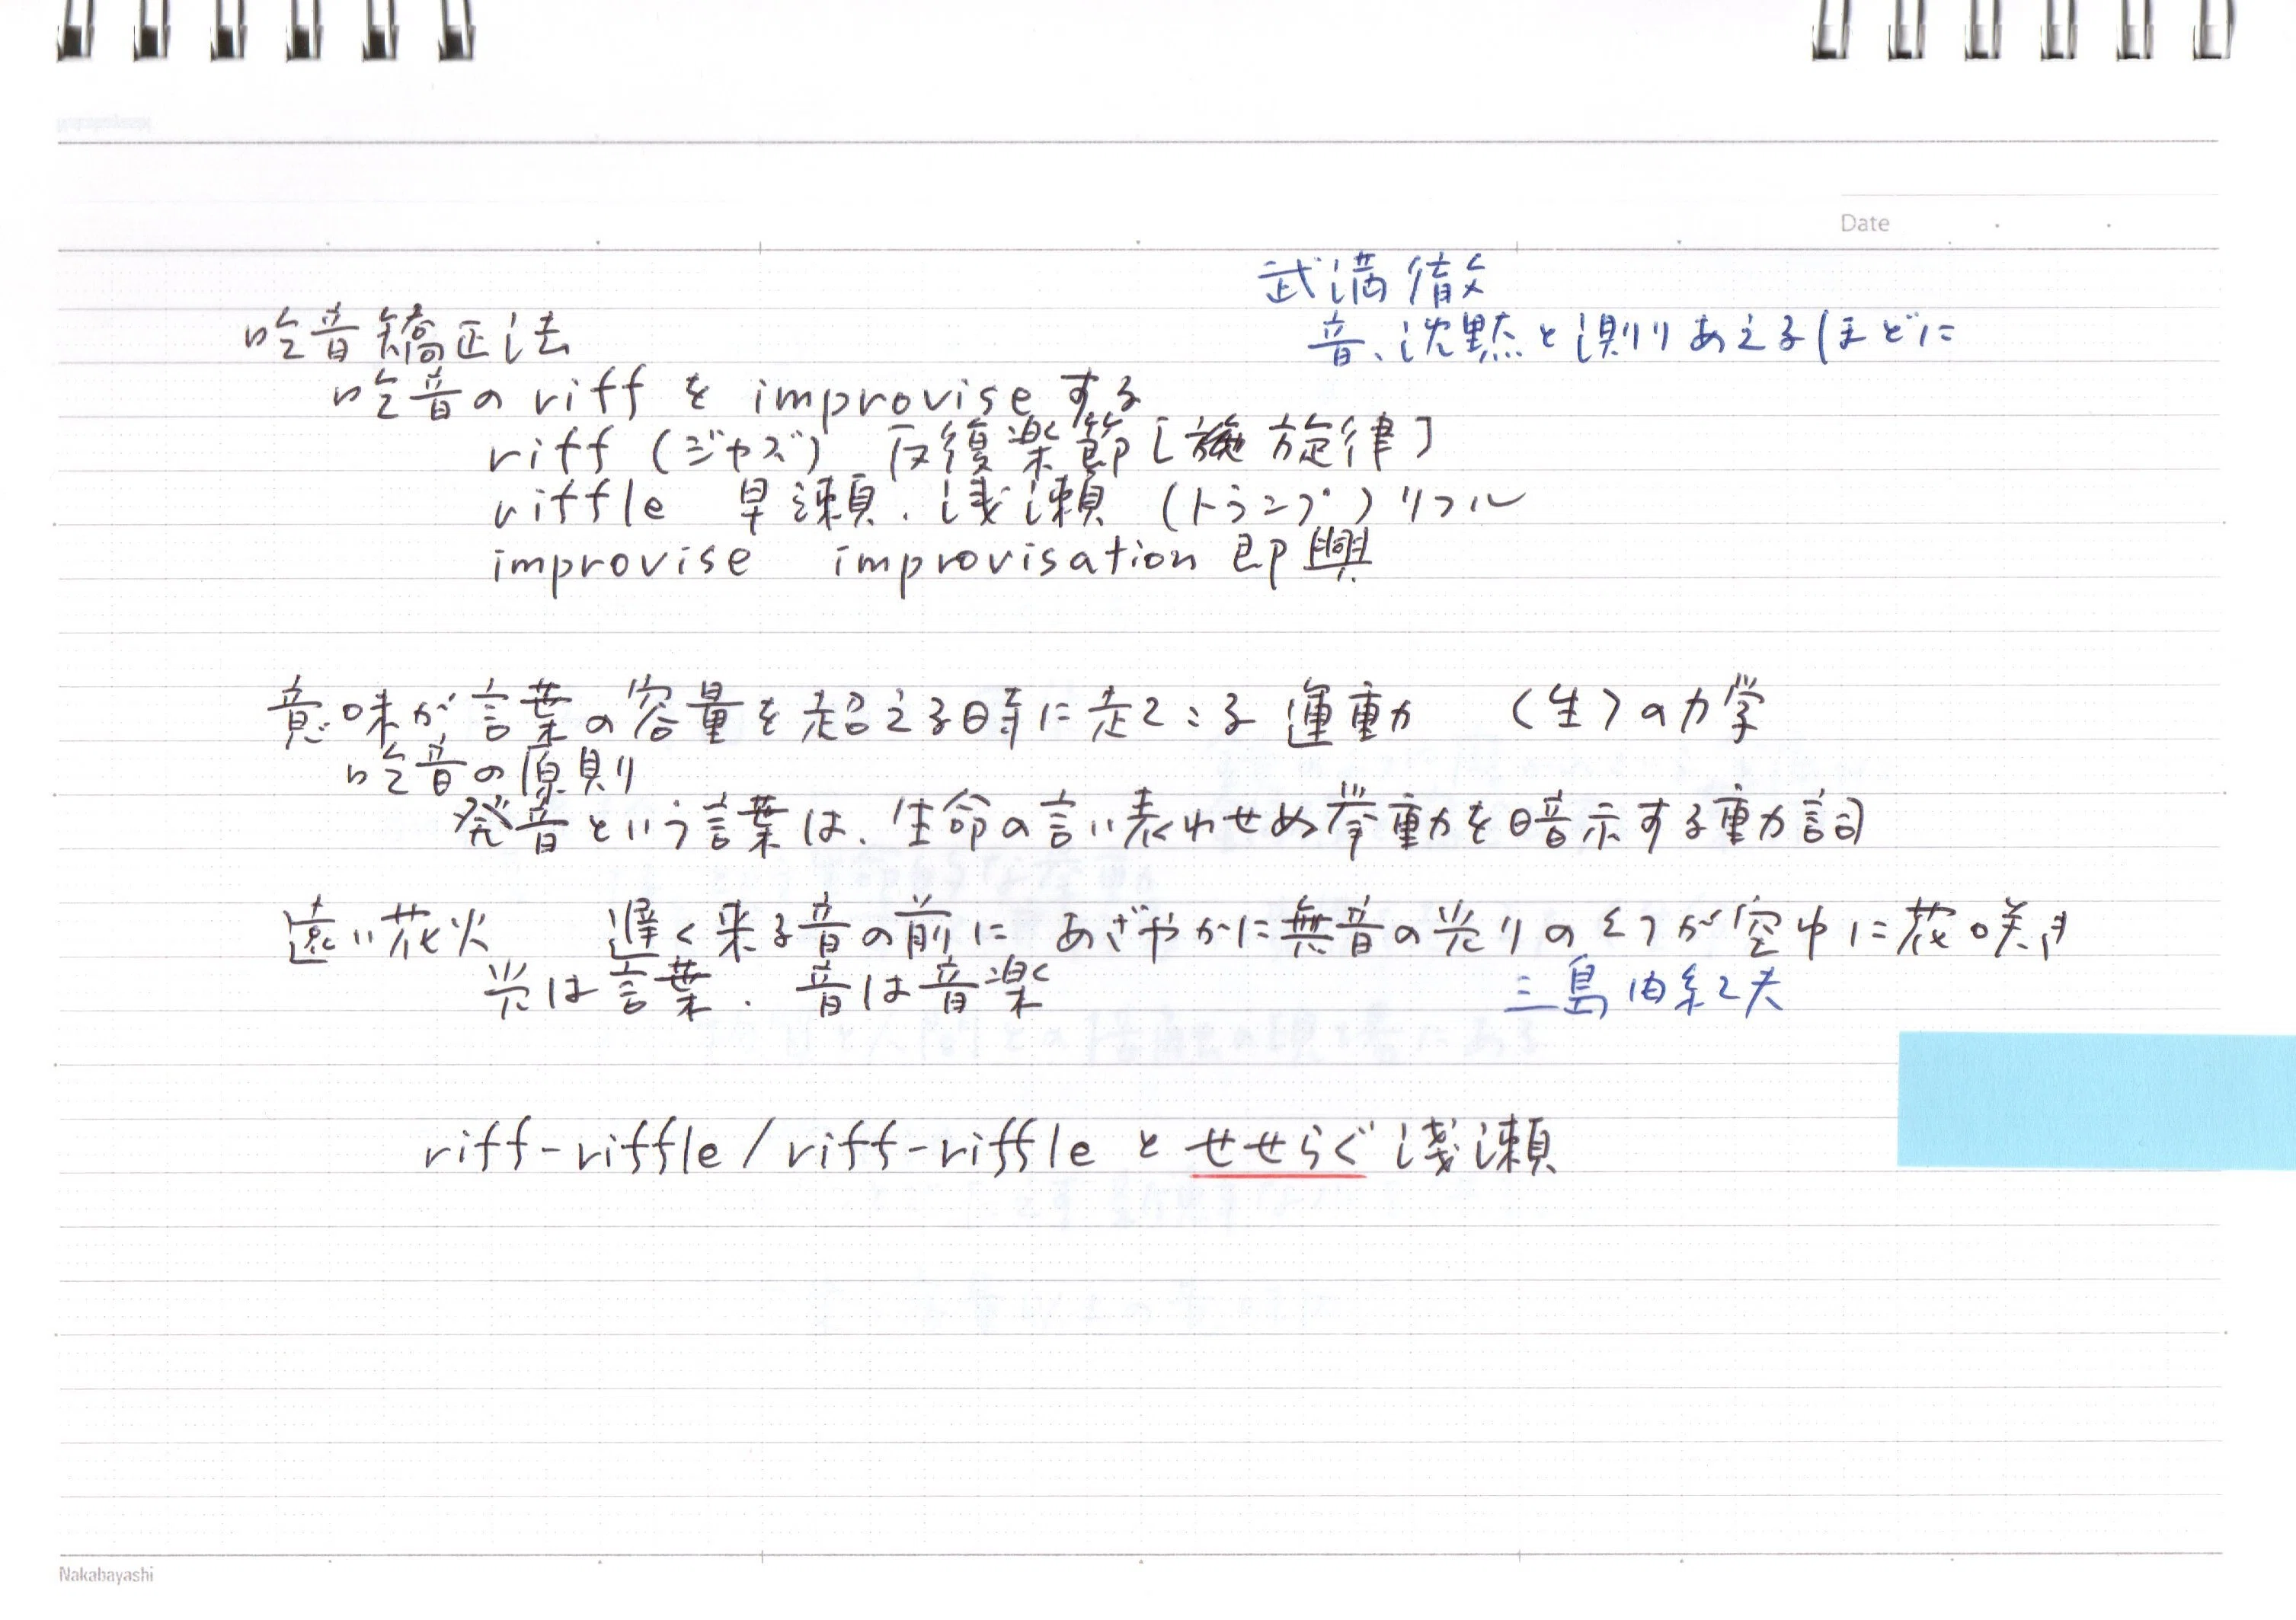 Date
武満徹
音、沈黙と測りあえるほどに
吃音矯正法
吃音の riff を improvise する
riff (ジャズ) 反復楽節[旋律]
riffle 早瀬.浅瀬 (トランプ)リフル
improvise improvisation 即興
意味が言葉の容量を超える時に起こる運動 〈生〉の力学
吃音の原則
発音という言葉は、生命の言い表わせぬ挙動を暗示する動詞
遠い花火 遅く来る音の前に あざやかに無音の光りの幻が空中に花咲き
光は言葉.音は音楽
三島由紀夫
riff-riffle/riff-riffle と せせらぐ 浅瀬
Nakabayashi